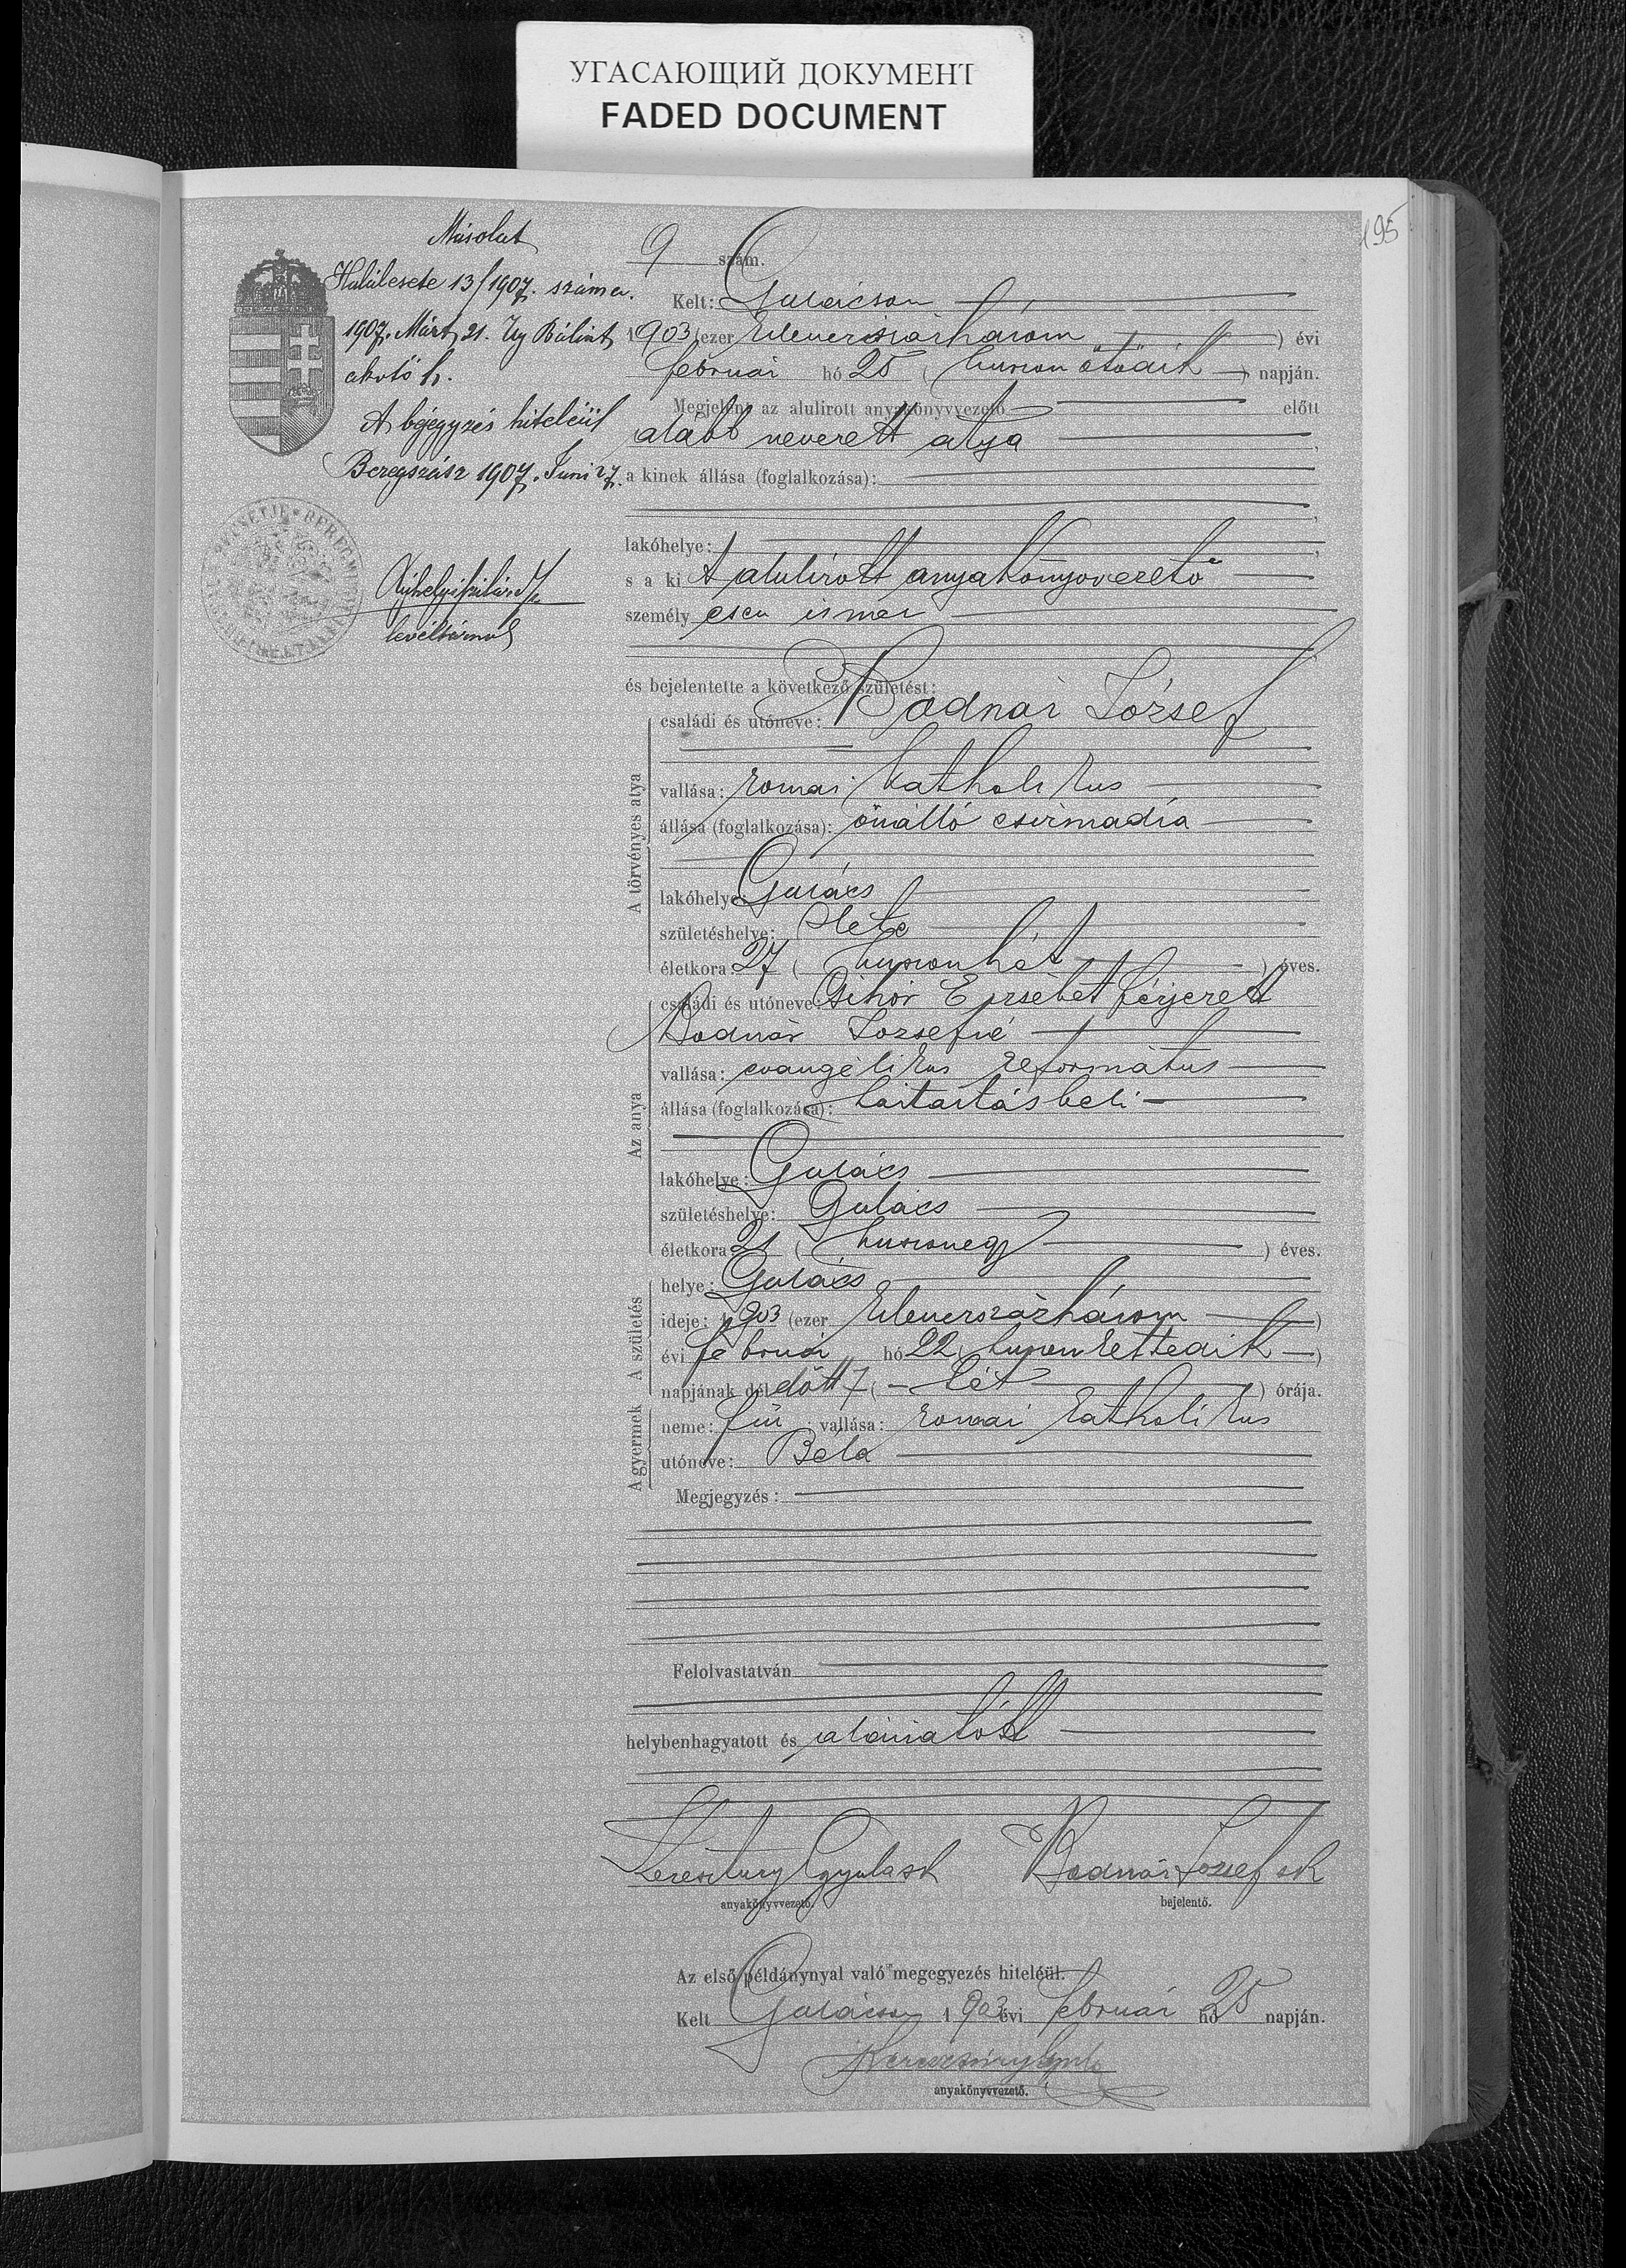 УГАСАЮЩИЙ ДОКУМЕНТ
FADED DOCUMENT
195
Másolat
Halálesete 13/1907. szám a.
1907. Márt. 21. Uy Bálint
akvtő h.
A bejegyzés hiteléül
Beregszász 1907. Juni 27.
levéltárnok
9 szám.
Kelt: Gulácson
1903 (ezer kilenczszázhárom) évi
február hó 25 (huszon ötödik) napján.
Megjelent az alulirott anyakönyvvezető előtt
alább nevezett atya
a kinek állása (foglalkozása):
lakóhelye:
s a ki t alulirott anyakönyvvezető
személyesen ismer
és bejelentette a következő születést:
A törvényes atya
családi és utóneve: Bodnár József
vallása: romai katholikus
állása (foglalkozása): önálló csizmadia
lakóhelye: Gulács
születéshelye: Kete
életkora: 27 (huszonhét) éves.
Az anya
családi és utóneve: Erzsébet férjezett
Bodnár Józsefné
vallása: evangélikus református
állása (foglalkozása): háztartásbeli
lakóhelye: Gulács
születéshelye: Gulács
életkora: 21 (huszonegy) éves.
A születés
helye: Gulács
ideje: 1903 (ezer kilenczszázhárom)
évi február hó 22 (huszonkettedik)
napjának délelőtt 7 (hét) órája.
A gyermek
neme: fiú; vallása: romai katholikus
utóneve: Béla
Megjegyzés:
Felolvastatván
helybenhagyatott és aláiratott
Keresztury Gyula sk Bodnár József sk
anyakönyvvezető. bejelentő.
Az első példánynyal való megegyezés hiteléül.
Kelt Gulácson 1903 évi február hó 25 napján.
Keresztury Gyula
anyakönyvvezető.